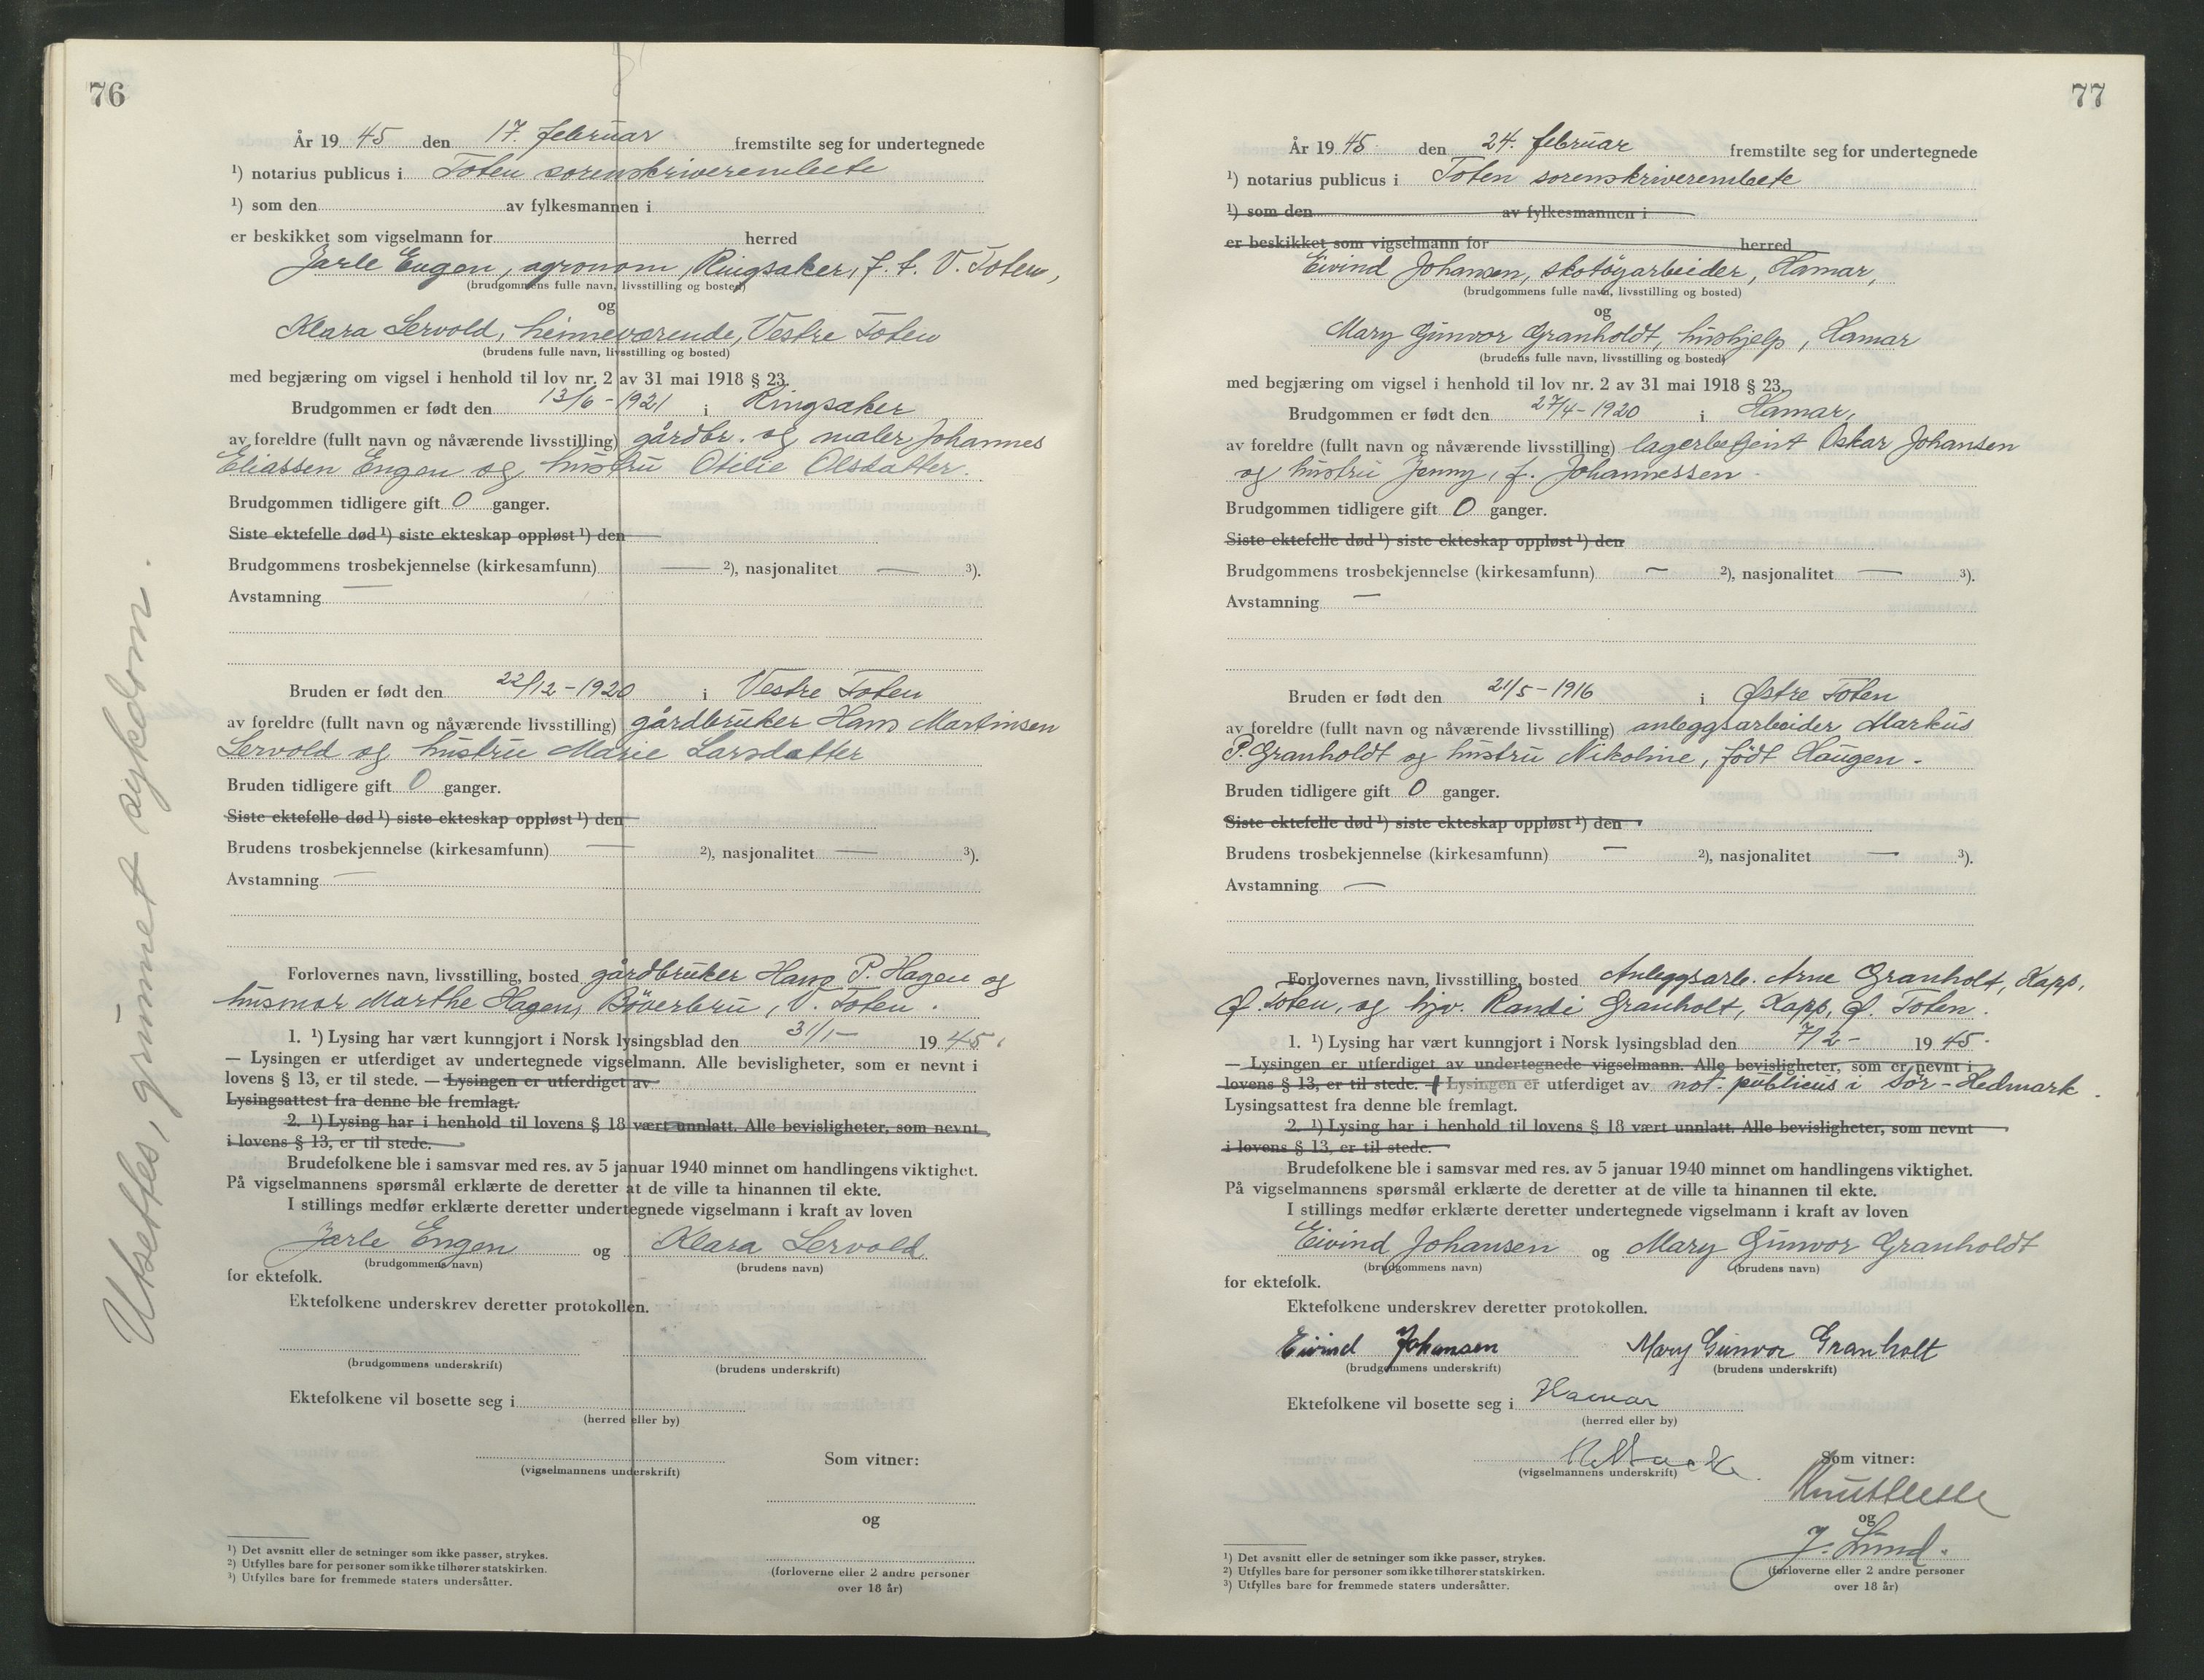 76
År 1945 den 17. februar fremstilte seg for undertegnede
¹) notarius publicus i Toten sorenskriverembete
¹) som den av fylkesmannen i
er beskikket som vigselmann for herred
Jarle Engen, agronom, Ringsaker, f. t. V. Toten,
(brudgommens fulle navn, livsstilling og bosted)
og
Klara Lervold, heimeværende, Vestre Toten
(brudens fulle navn, livsstilling og bosted)
med begjæring om vigsel i henhold til lov nr. 2 av 31 mai 1918 § 23.
Brudgommen er født den 13/6-1921 i Ringsaker
av foreldre (fullt navn og nåværende livsstilling) gårdbr. og maler Johannes
Eliassen Engen og hustru Otilie Olsdatter.
Brudgommen tidligere gift 0 ganger.
Siste ektefelle død ¹) siste ekteskap oppløst ¹) den
Brudgommens trosbekjennelse (kirkesamfunn) — ²), nasjonalitet — ³).
Avstamning —
Bruden er født den 22/12-1920 i Vestre Toten
av foreldre (fullt navn og nåværende livsstilling) gårdbruker Hans Martinsen
Lervold og hustru Marie Larsdatter
Bruden tidligere gift 0 ganger.
Siste ektefelle død ¹) siste ekteskap oppløst ¹) den
Brudens trosbekjennelse (kirkesamfunn) — ²), nasjonalitet — ³).
Avstamning —
Forlovernes navn, livsstilling, bosted gårdbruker Hans P. Hagen og
husmor Marthe Hagen, Böverbru, V. Toten.
1. ¹) Lysing har vært kunngjort i Norsk lysingsblad den 31/1- 1945.
— Lysingen er utferdiget av undertegnede vigselmann. Alle bevisligheter, som er nevnt i
lovens § 13, er til stede. — Lysingen er utferdiget av
Lysingsattest fra denne ble fremlagt.
2. ¹) Lysing har i henhold til lovens § 18 vært unnlatt. Alle bevisligheter, som nevnt
i lovens § 13, er til stede.
Brudefolkene ble i samsvar med res. av 5 januar 1940 minnet om handlingens viktighet.
På vigselmannens spørsmål erklærte de deretter at de ville ta hinannen til ekte.
I stillings medfør erklærte deretter undertegnede vigselmann i kraft av loven
Jarle Engen og Klara Lervold
(brudgommens navn) (brudens navn)
for ektefolk.
Ektefolkene underskrev deretter protokollen.
(brudgommens underskrift) (brudens underskrift)
Ektefolkene vil bosette seg i
(herred eller by)
(vigselmannens underskrift)
Som vitner:
og
(forloverne eller 2 andre personer
over 18 år)
¹) Det avsnitt eller de setninger som ikke passer, strykes.
²) Utfylles bare for personer som ikke tilhører statskirken.
³) Utfylles bare for fremmede staters undersåtter.
Utsettes, grunnet sykdom.
77
År 1945 den 24. februar fremstilte seg for undertegnede
¹) notarius publicus i Toten sorenskriverembete
¹) som den av fylkesmannen i
er beskikket som vigselmann for herred
Eivind Johansen, skotøyarbeider, Hamar,
(brudgommens fulle navn, livsstilling og bosted)
og
Mary Gunvor Granholdt, hushjelp, Hamar
(brudens fulle navn, livsstilling og bosted)
med begjæring om vigsel i henhold til lov nr. 2 av 31 mai 1918 § 23.
Brudgommen er født den 27/4-1920 i Hamar,
av foreldre (fullt navn og nåværende livsstilling) lagerbetjent Oskar Johansen
og hustru Jenny, f. Johannessen.
Brudgommen tidligere gift 0 ganger.
Siste ektefelle død ¹) siste ekteskap oppløst ¹) den
Brudgommens trosbekjennelse (kirkesamfunn) — ²), nasjonalitet — ³).
Avstamning —
Bruden er født den 21/5-1916 i Østre Toten
av foreldre (fullt navn og nåværende livsstilling) anleggsarbeider Markus
P. Granholdt og hustru Nikoline, født Haugen.
Bruden tidligere gift 0 ganger.
Siste ektefelle død ¹) siste ekteskap oppløst ¹) den
Brudens trosbekjennelse (kirkesamfunn) — ²), nasjonalitet — ³).
Avstamning —
Forlovernes navn, livsstilling, bosted Anleggsarb. Arne Granholt, Kapp,
Ø. Toten, og hjv. Randi Granholt, Kapp, Ø. Toten.
1. ¹) Lysing har vært kunngjort i Norsk lysingsblad den 7/2- 1945.
— Lysingen er utferdiget av undertegnede vigselmann. Alle bevisligheter, som er nevnt i
lovens § 13, er til stede. — Lysingen er utferdiget av not. publicus i Sør-Hedmark.
Lysingsattest fra denne ble fremlagt.
2. ¹) Lysing har i henhold til lovens § 18 vært unnlatt. Alle bevisligheter, som nevnt
i lovens § 13, er til stede.
Brudefolkene ble i samsvar med res. av 5 januar 1940 minnet om handlingens viktighet.
På vigselmannens spørsmål erklærte de deretter at de ville ta hinannen til ekte.
I stillings medfør erklærte deretter undertegnede vigselmann i kraft av loven
Eivind Johansen og Mary Gunvor Granholdt
(brudgommens navn) (brudens navn)
for ektefolk.
Ektefolkene underskrev deretter protokollen.
Eivind Johansen Mary Gunvor Granholt
(brudgommens underskrift) (brudens underskrift)
Ektefolkene vil bosette seg i Hamar
(herred eller by)
(vigselmannens underskrift)
Som vitner:
og
J. Lund.
(forloverne eller 2 andre personer
over 18 år)
¹) Det avsnitt eller de setninger som ikke passer, strykes.
²) Utfylles bare for personer som ikke tilhører statskirken.
³) Utfylles bare for fremmede staters undersåtter.